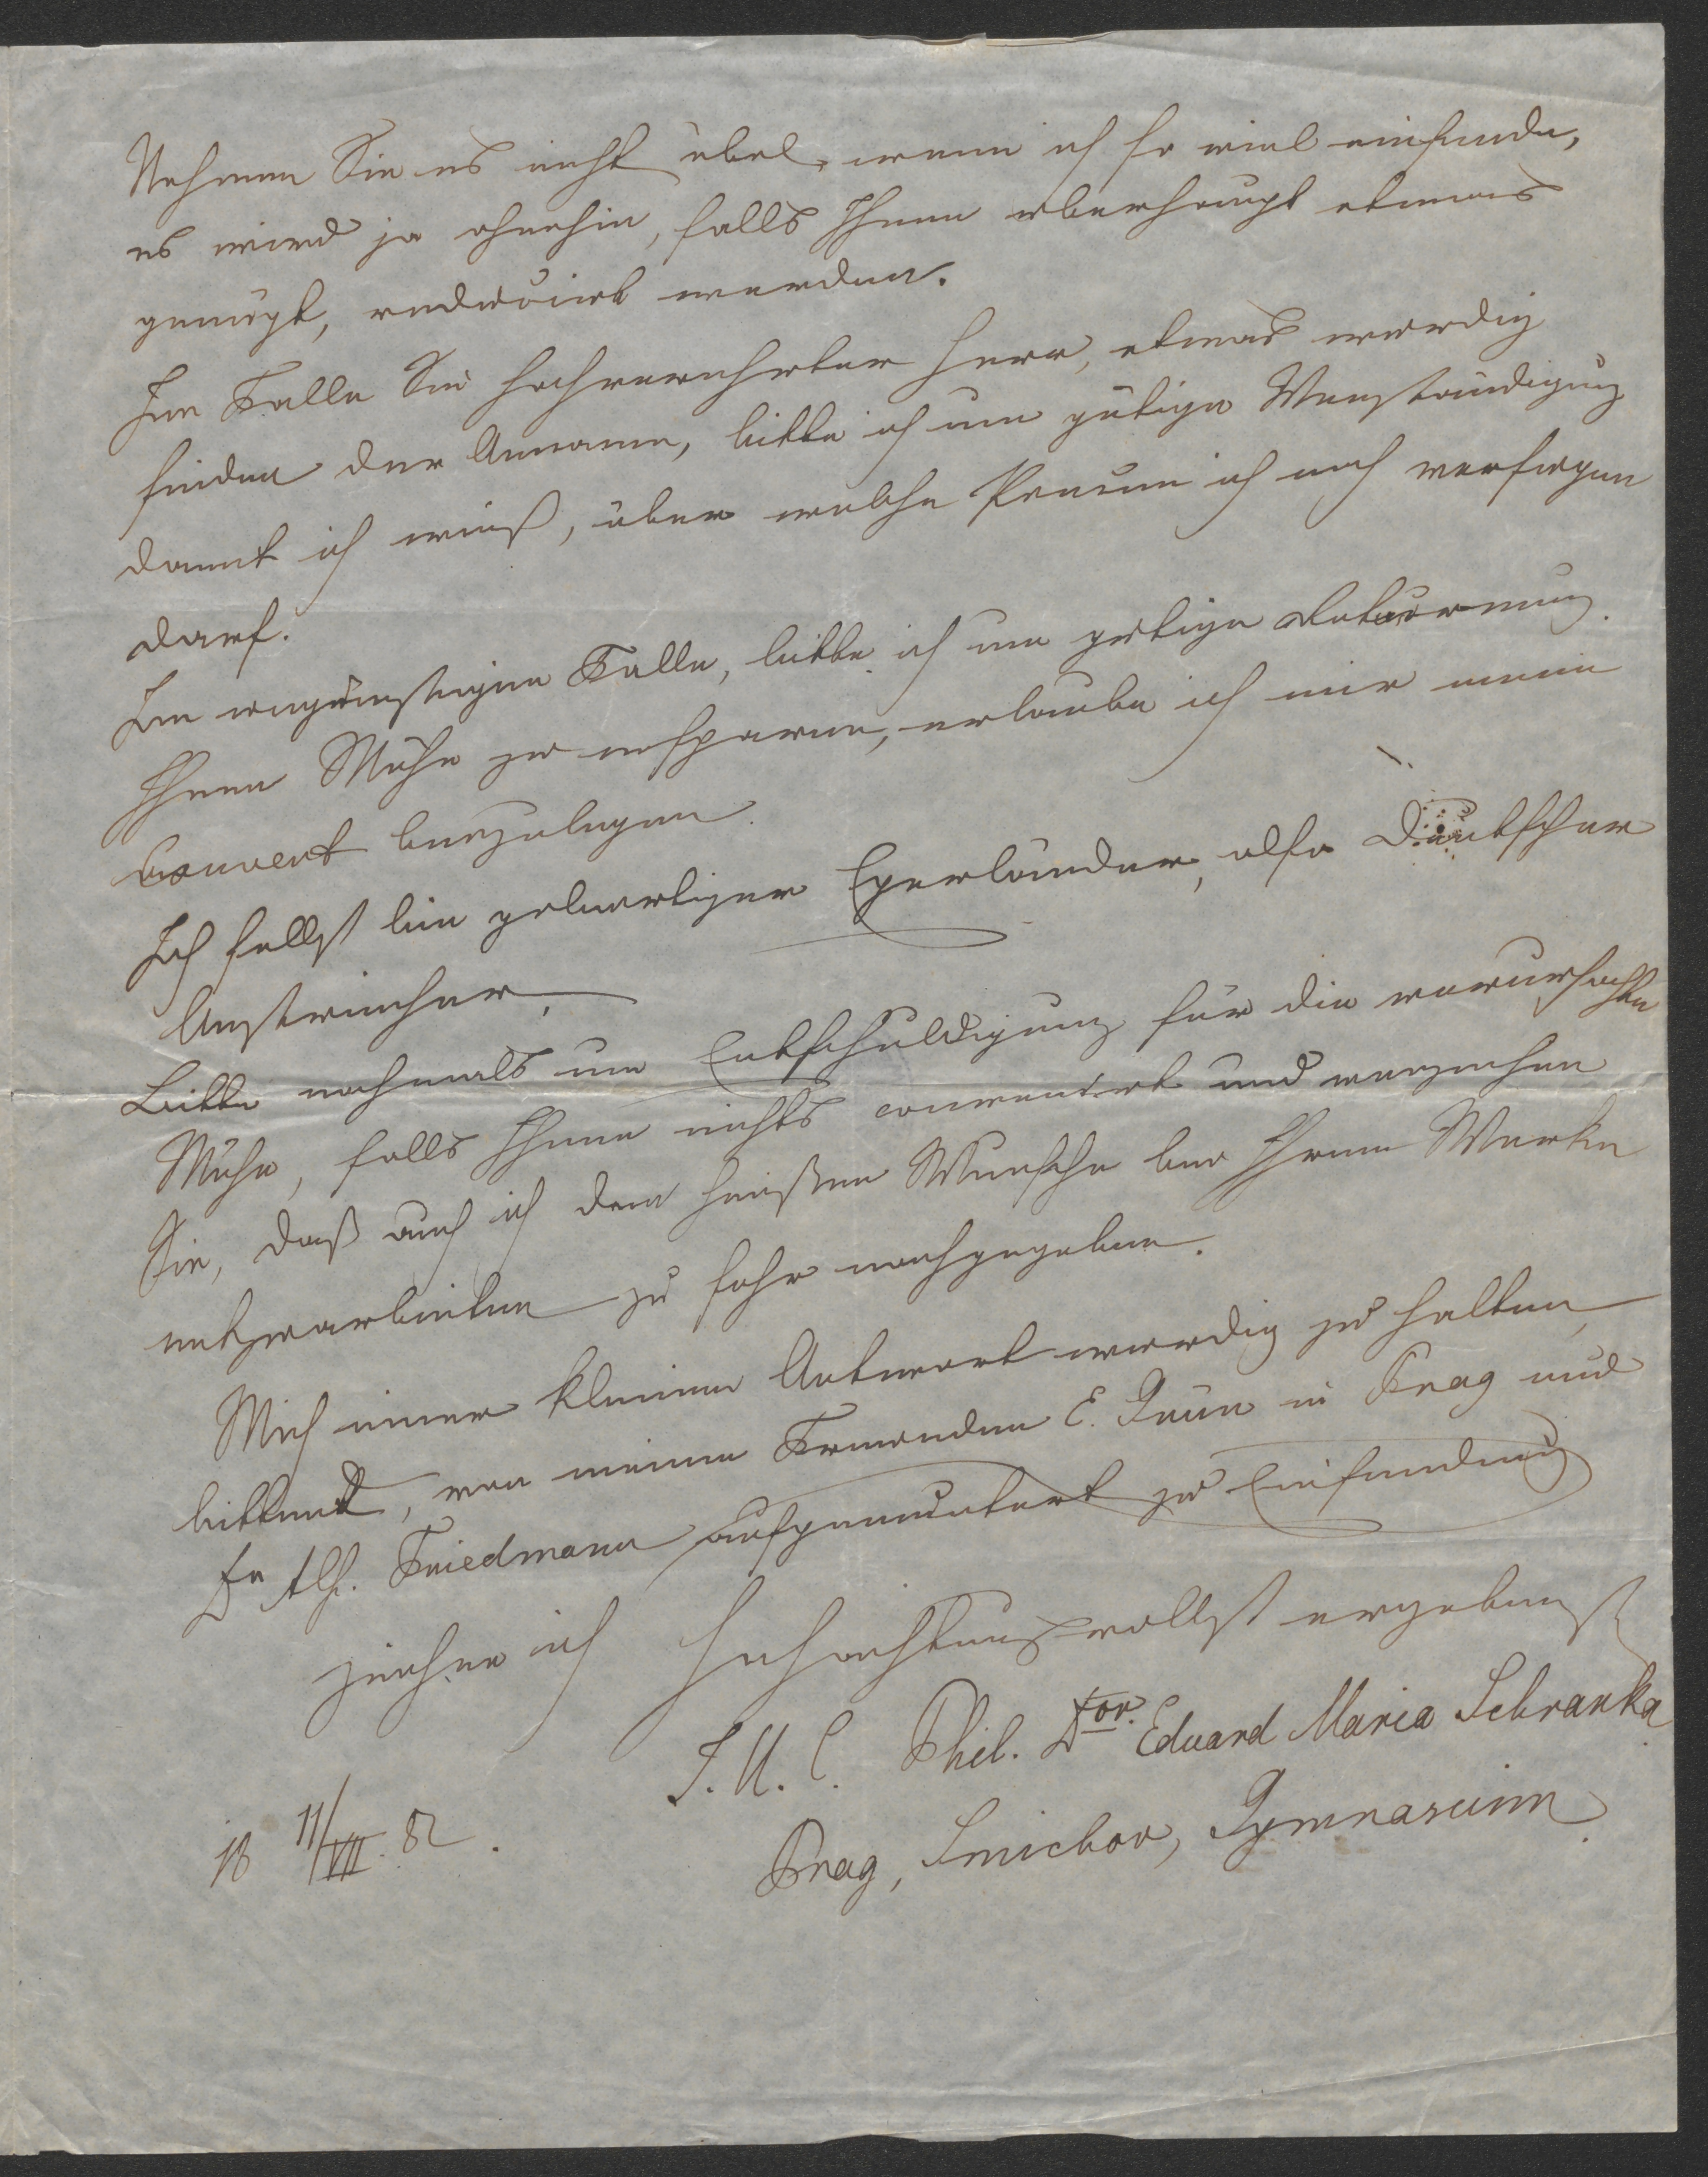 Nehmen Sie es nicht übel, wenn ich so viel einsende,
es wird ja ohnehin, falls Ihnen überhaupt etwas
genügt, reducirt werden.
Im Falle Sie hochverehrter Herr, etwas würdig
finden der Annahme, bitte ich um gütige Verständigung
damit ich weiß, über welche Piecen ich noch verfügen
darf.
Im ungünstigen Falle, bitte ich um gütige Retournung.
Ihnen Mühe zu ersparen, erlaube ich mir mein
Couvert beizulegen.
Ich selbst bin gebürtiger Egerländer, also Deutscher
Österreicher.
Bitte nochmals um Entschuldigung für die verursachte
Mühe, falls Ihnen nichts convenirt und verzeihen
Sie, daß auch ich dem heißen Wunsche bei Ihrem Werke
mitzuarbeiten zu sehr nachgegeben.
Mich einer kleinen Antwort würdig zu halten,
bittend, von meinen Freunden E. Grün in Prag und
Dr Alf. Friedmann aufgemuntert zu Einsendung
zeichne ich hochachtungsvollst ergebenst
J. U. C. Phil. Dor. Eduard Maria Schranka
18 11/VII. 82. Prag, Smichov, Gymnasium.